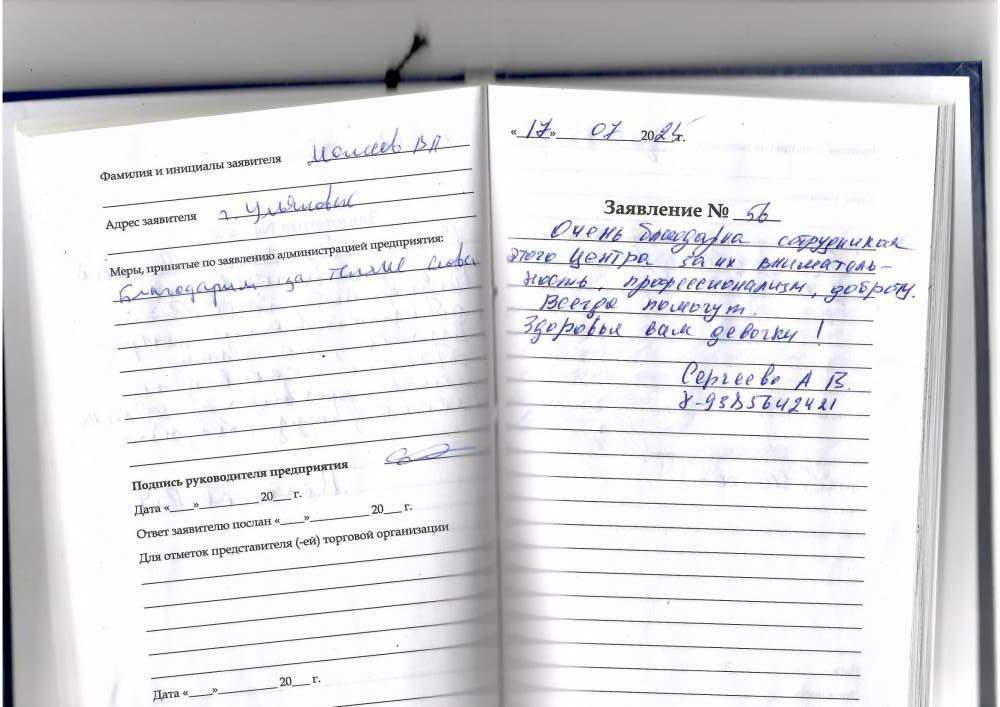 Фамилия и инициалы заявителя Моисеев ВП
Адрес заявителя г. Ульяновск
Меры, принятые по заявлению администрацией предприятия:
Благодарим за теплые слова
Подпись руководителя предприятия
Дата «___»__________ 20___ г.
Ответ заявителю послан «____»__________ 20___ г.
Для отметок представителя (-ей) торговой организации
Дата «____»__________ 20___ г.
«17» 07 2024 г.
Заявление № 56
Очень благодарна сотрудникам
этого Центра за их вниматель-
ность, профессионализм, доброту.
Всегда помогут.
Здоровья вам девочки!
Сергеева А В.